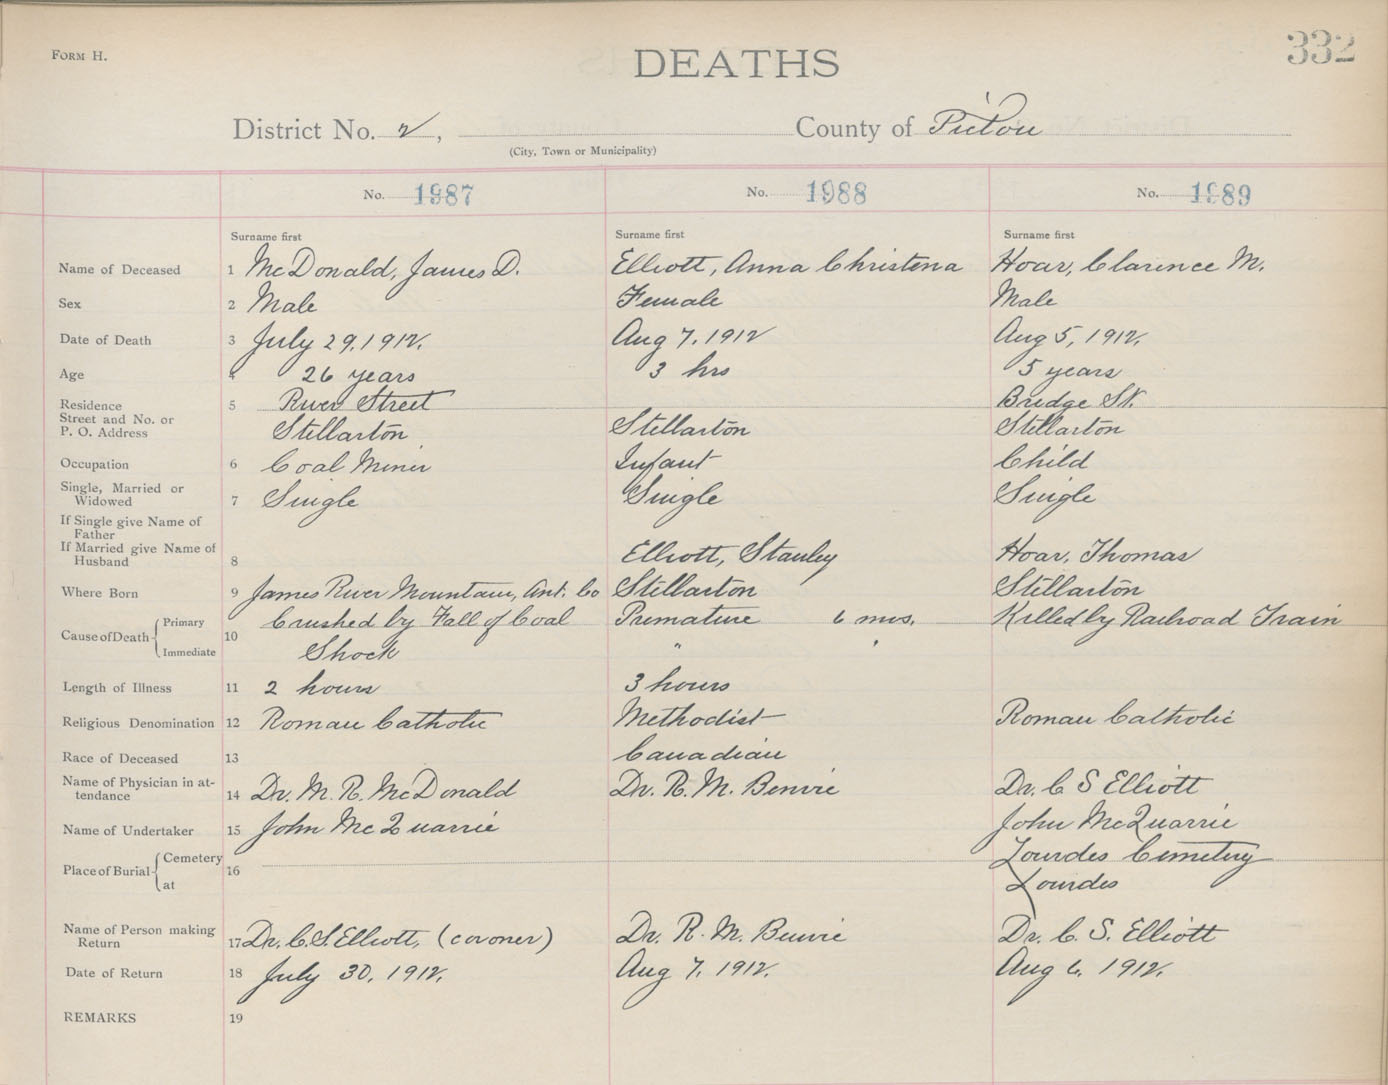 FORM H.
DEATHS
332
District No. 2, County of Pictou
(City, Town or Municipality)
No. 1987 No. 1988 No. 1989
Surname first Surname first Surname first
Name of Deceased 1 McDonald, James D. Elliott, Anna Christena Hoar, Clarence M.
Sex 2 Male Female Male
Date of Death 3 July 29, 1912. Aug 7, 1912 Aug 5, 1912.
Age 4 26 years 3 hrs 5 years
Residence 5 River Street Bridge St.
Street and No. or
P. O. Address Stellarton Stellarton Stellarton
Occupation 6 Coal Miner Infant Child
Single, Married or
Widowed 7 Single Single Single
If Single give Name of
Father
If Married give Name of
Husband 8 Elliott, Stanley Hoar, Thomas
Where Born 9 James River Mountain, Ant. Co Stellarton Stellarton
Cause of Death 10 Primary Crushed by Fall of Coal Premature 6 mos. Killed by Railroad Train
Immediate Shock " "
Length of Illness 11 2 hours 3 hours
Religious Denomination 12 Roman Catholic Methodist Roman Catholic
Race of Deceased 13 Canadian
Name of Physician in at-
tendance 14 Dr. M. R. McDonald Dr. R. M. Benvie Dr. C S Elliott
Name of Undertaker 15 John McQuarrie John McQuarrie
Place of Burial 16 Cemetery Lourdes Cemetery
at Lourdes
Name of Person making
Return 17 Dr. C. S. Elliott, (coroner) Dr. R. M. Benvie Dr. C. S. Elliott
Date of Return 18 July 30, 1912. Aug 7, 1912. Aug 6, 1912.
REMARKS 19